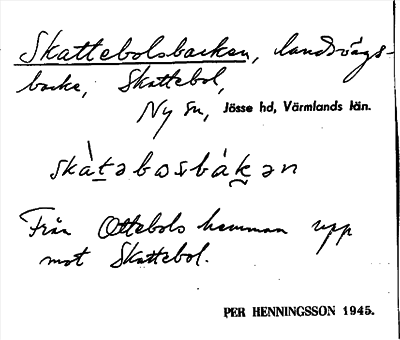 Skattebolsbacken, landsvägs-
backe, Skattebol,
Ny sn, Jösse hd, Värmlands län.
skàtəbosbákən
Från Ottebols hemman upp
mot Skattebol.
PER HENNINGSSON 1945.